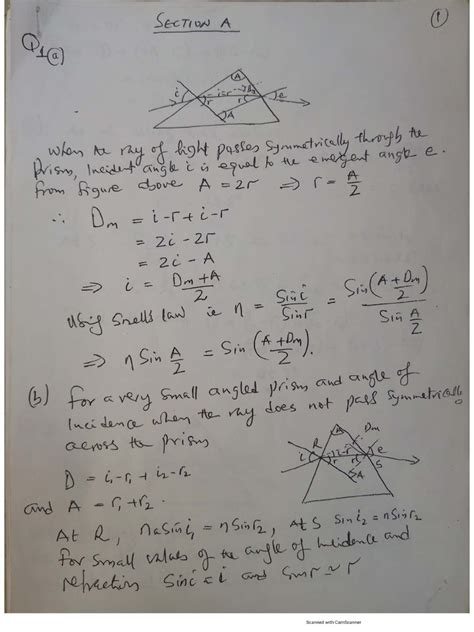 SECTION A
1
Q1 (a)
A
i
r
i-r
r
e
A
When the ray of light passes symmetrically through the
Prism, Incident angle i is equal to the emergent angle e.
from figure above A = 2r ⇒ r = A/2
∴ Dm = i-r + i-r
= 2i - 2r
= 2i - A
⇒ i = (Dm + A)/2
Using Snells law ie n = Sin i / Sin r = Sin((A + Dm)/2) / Sin A/2
⇒ n Sin A/2 = Sin((A + Dm)/2).
(b) for a very small angled prism and angle of
Incidence when the ray does not pass symmetrically
across the prism
A
Dm
R
i
r
r
e
S
A
D = i1-r1 + i2-r2
and A = r1 + r2.
At R, na Sin i1 = n Sin r2, At S Sin i2 = n Sin r2
for small values of the angle of incidence and
refraction Sin i ≃ i and Sin r ≃ r
Scanned with CamScanner